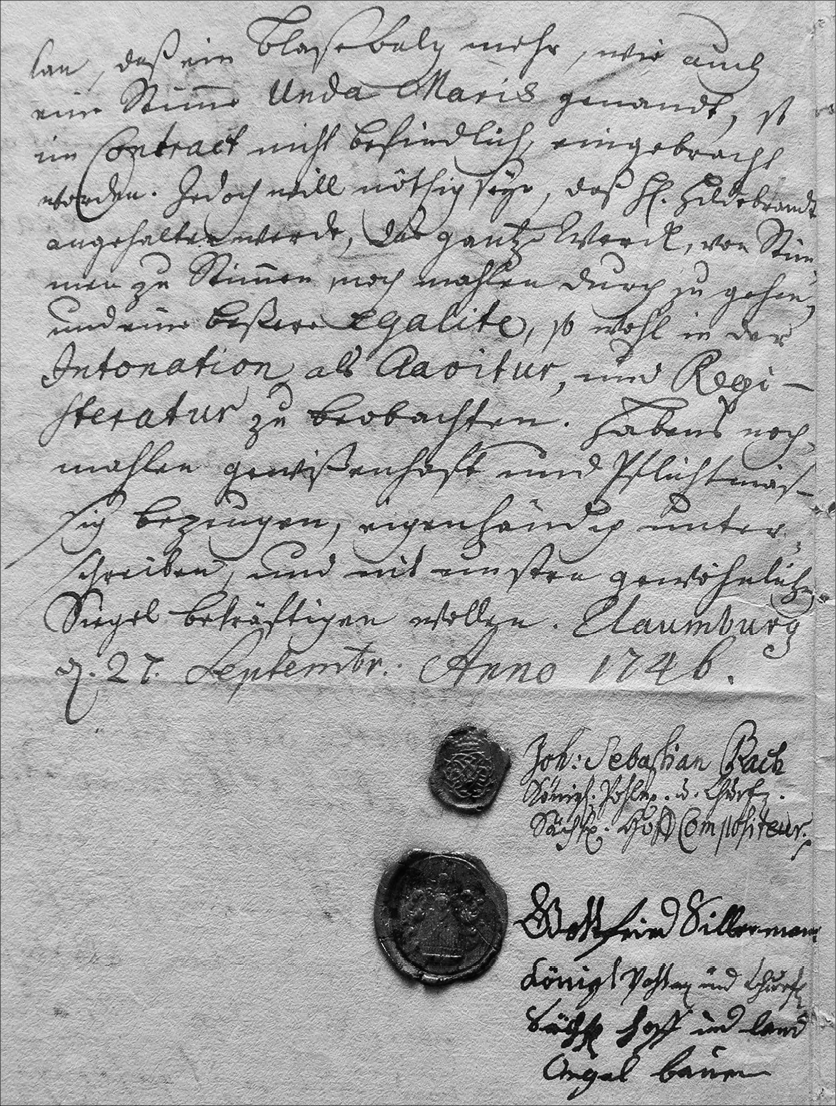 lan, daß ein Blasebalg mehr, wie auch
eine Stimme Unda Maris genandt, so
im Contract nicht befindlich, eingebracht
worden. Jedoch will nöthig seyn, daß H. Hildebrandt
angehalten werde, das gantze Werck, von Stim
men zu Stimmen noch mahlen durch zu gehen,
und eine beßere egalite, so wohl in der
Intonation als
und Regi-
steratur zu beobachten. Habens noch
mahlen gewißenhafft und Pflichtmäs-
sig bezeugen, eigenhändig unter
schreiben, und mit unsren gewöhnlichen
Siegel bekräftigen wollen. Naumburg
d. 27. Septembr. Anno 1746.
Joh: Sebastian Bach
Königl. Pohln. u. Churf.
Sächß. Hoff Compositeur.
Gottfried Silbermann
Königl Pohln und Churf
Sächß hoff und land
Orgel bauer